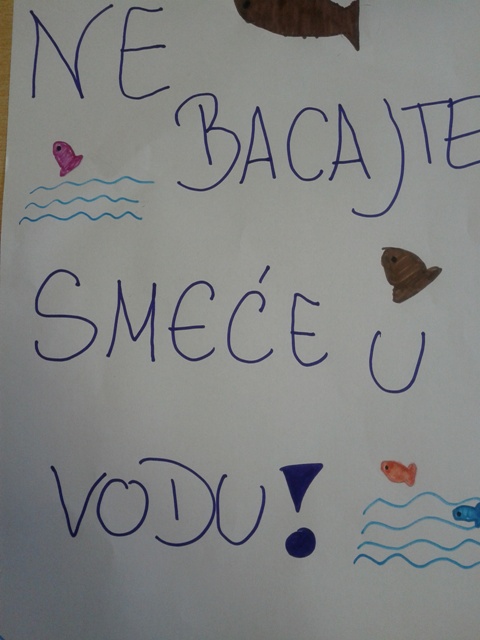 NE
BACAJTE
SMEĆE U
VODU!